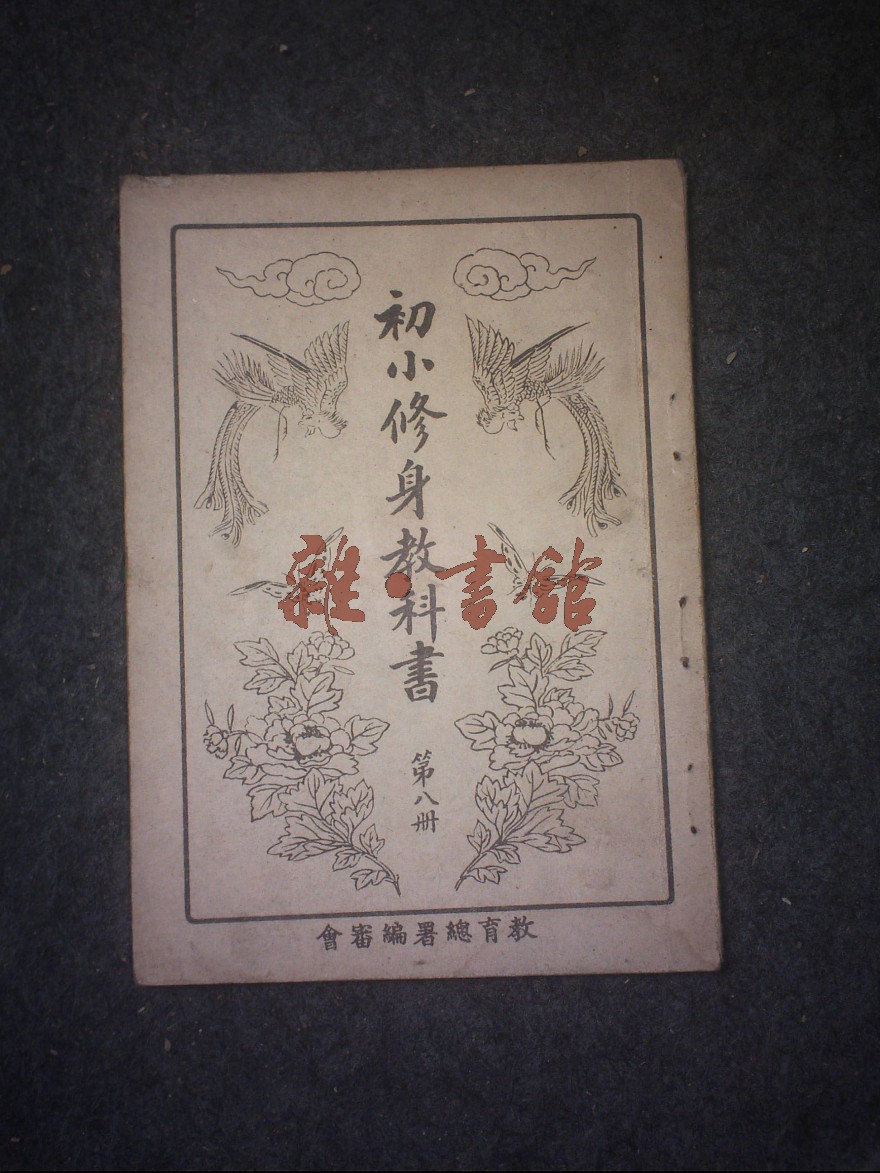 初小修身教科書
第八冊
教育總署編審會
雜·書館